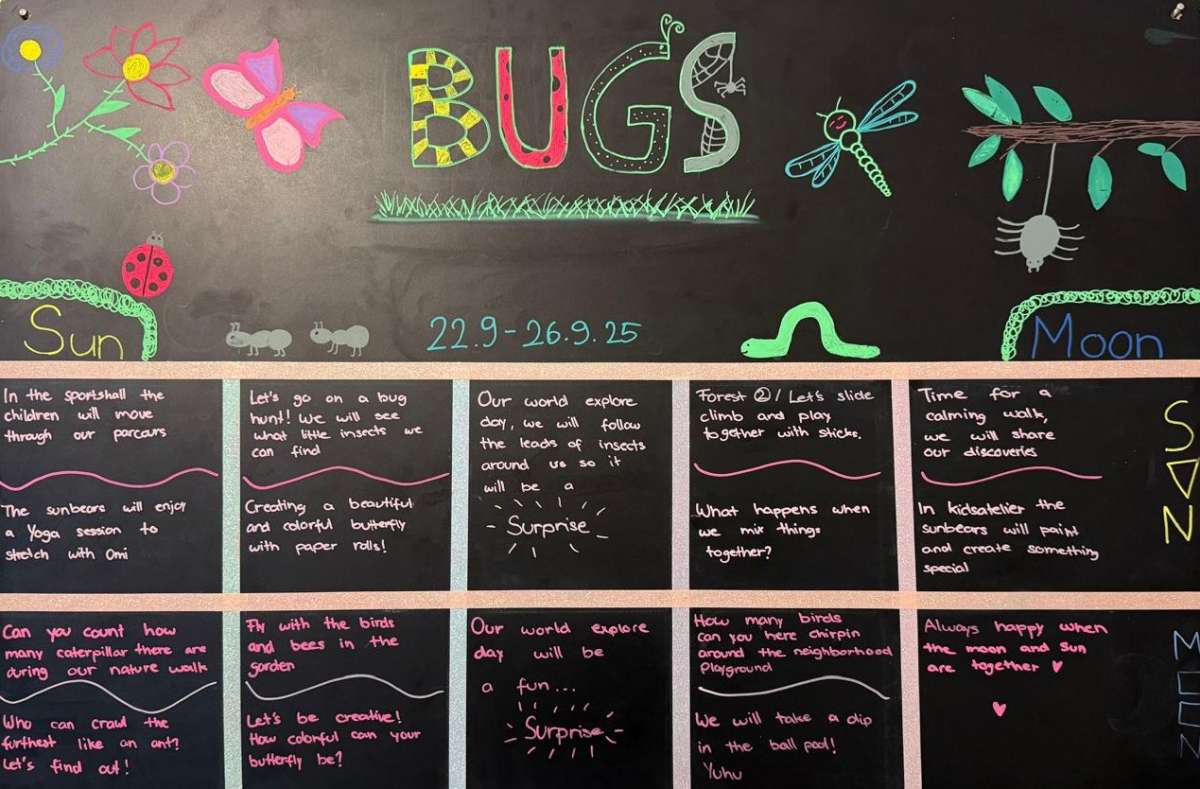 BUGS
Sun
22.9-26.9.25
Moon
In the sportshall the
children will move
through our parcours
The sunbears will enjoy
a Yoga session to
stretch with Omi
Let's go on a bug
hunt! We will see
what little insects we
can find
Creating a beautiful
and colorful butterfly
with paper rolls!
Our world explore
day, we will follow
the leads of insects
around us so it
will be a
Surprise
Forest ② / Let's slide
climb and play
together with sticks.
What happens when
we mix things
together?
Time for a
calming walk,
we will share
our discoveries
In kidsatelier the
sunbears will paint
and create something
special
SUN
Can you count how
many caterpillar there are
during our nature walk
Who can crawl the
furthest like an ant?
Let's find out!
Fly with the birds
and bees in the
garden
Let's be creative!
How colorful can your
butterfly be?
Our world explore
day will be
a fun...
Surprise
How many birds
can you here chirpin
around the neighborhood
playground
We will take a dip
in the ball pool!
Yuhu
Always happy when
the moon and sun
are together
MOON